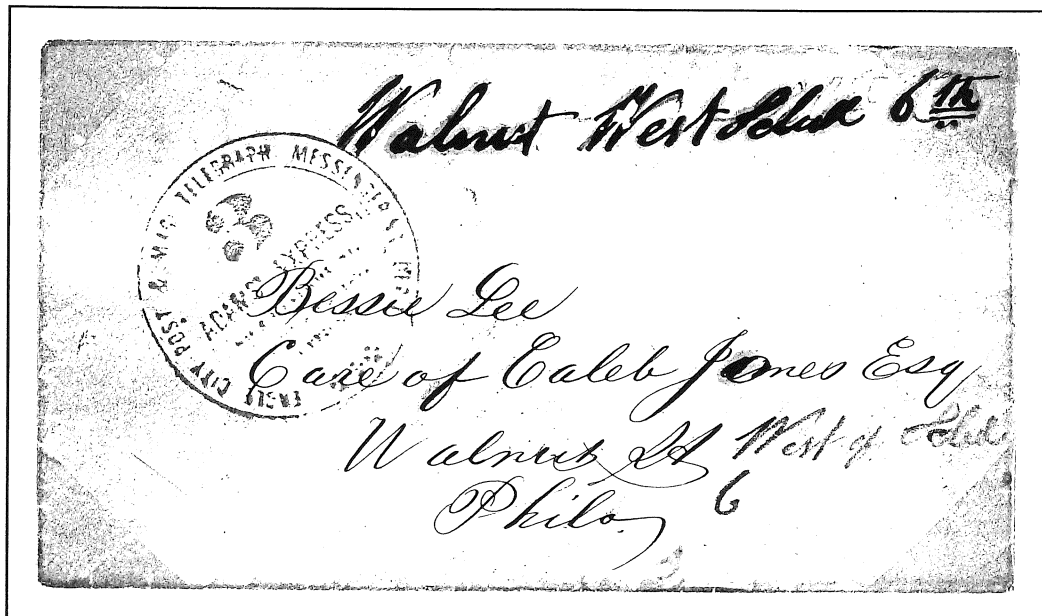 Walnut West 6th
EAGLE CITY POST & MAG: TELEGRAPH MESSENGERS
ADAMS' EXPRESS
Bessie Lee
Care of Caleb Jones Esq
Walnut St West of
6
Phila